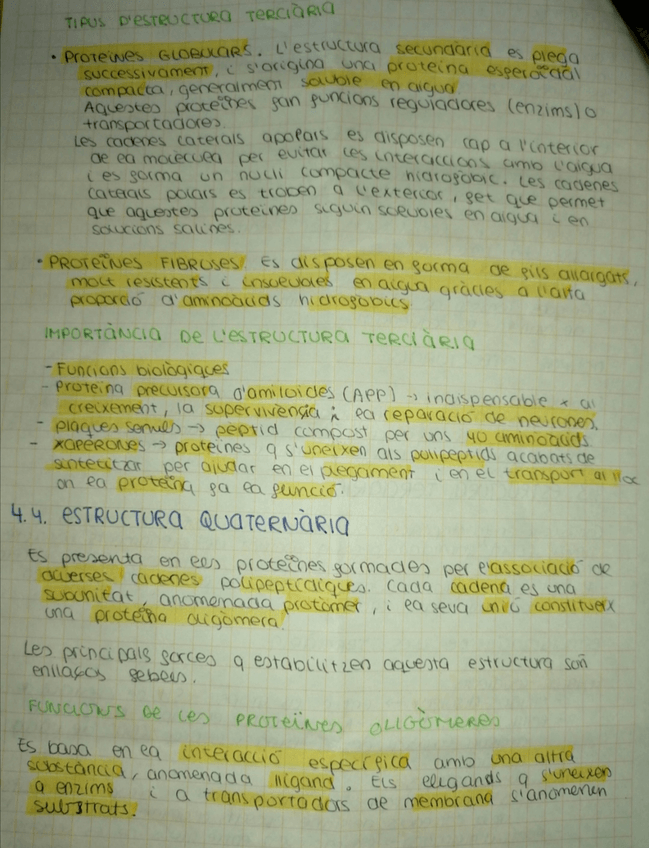 TIPUS D'ESTRUCTURA TERCIÀRIA
• PROTEÏNES GLOBULARS. L'estructura secundària es plega
successivament, i s'origina una proteïna esferoïdal
compacta, generalment soluble en aigua.
Aquestes proteïnes fan funcions reguladores (enzims) o
transportadores.
Les cadenes laterals apolars es disposen cap a l'interior
de la molècula per evitar les interaccions amb l'aigua
i es forma un nucli compacte hidrofòbic. Les cadenes
laterals polars es troben a l'exterior, fet que permet
que aquestes proteïnes siguin solubles en aigua i en
solucions salines.
• PROTEÏNES FIBROSES. Es disposen en forma de fils allargats,
molt resistents i insolubles en aigua gràcies a l'alta
proporció d'aminoàcids hidrofòbics
IMPORTÀNCIA DE L'ESTRUCTURA TERCIÀRIA
- Funcions biològiques
- Proteïna precursora d'amiloides (APP) → indispensable x al
creixement, la supervivència i la reparació de neurones.
- plaques senils → pèptid compost per uns 40 aminoàcids
- XAPERONES → proteïnes q s'uneixen als polipèptids acabats de
sintetitzar per ajudar en el plegament i en el transport al lloc
on la proteïna fa la funció.
4.4. ESTRUCTURA QUATERNÀRIA
Es presenta en les proteïnes formades per l'associació de
diverses cadenes polipeptídiques. Cada cadena és una
subunitat, anomenada protòmer, i la seva unió constitueix
una proteïna oligòmera.
Les principals forces q estabilitzen aquesta estructura són
enllaços febles.
FUNCIONS DE LES PROTEÏNES OLIGÒMERES
Es basa en la interacció específica amb una altra
substància, anomenada lligand. Els lligands q s'uneixen
a enzims i a transportadors de membrana s'anomenen
substrats.